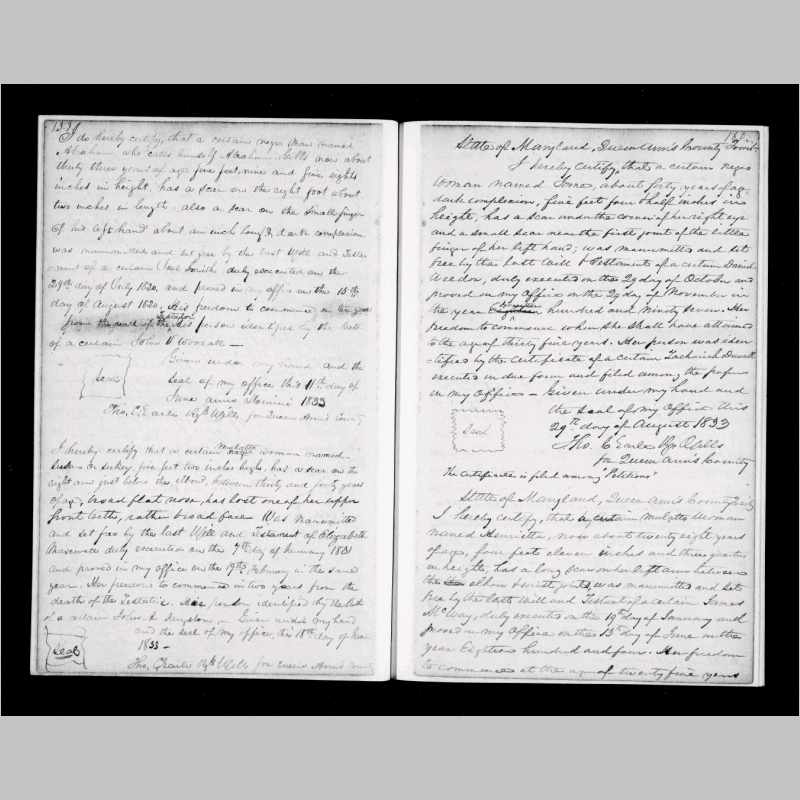 I do hereby certify, that a certain negro man named
Abraham who calls himself Abraham now about
thirty three years of age five feet nine and five eights
inches in height, has a scar on the right foot about
two inches in length also a scar on the small finger
of his left hand about an inch long & dark complexion
was manumitted and set free by the last Will and Testa
ment of a certain duly executed on the
29th day of July 1820, and proved in my office on the 15th
day of August 1820, His freedom to commence in ten years
from the death of the Testator, His person identified by the
of a certain John
Given under my hand and the
Seal
seal of my office this 11th day of
June anno Domini 1833
Tho. C. Earle Rgr Wills for Queen Ann's County
I hereby certify that a certain mulatto woman named
Suckey, five feet two inches high, has a scar on the
right arm just below the elbow, between thirty and forty years
of age, broad flat nose, has lost one of her upper
front teeth, rather broad face Was manumitted
and set free by the last Will and Testament of Elizabeth
duly executed on the 7th day of 1831
and proved in my office on the 19th February in the same
year. Her freedom to commence in two years from the
death of the Testatrix. Her person identified by the
of a certain John Given under my hand
Seal
and the seal of my office, this 18th day of June
1833 -
Tho. C Earle Rgr Wills for Queen Ann's County
State of Maryland, Queen Ann's County
I hereby certify, that a certain negro
woman named about forty years of age
dark complexion, five feet four & half inches in
height, has a scar under the corner of her right eye
and a small scar near the first joint of the little
finger of her left hand; was manumitted and set
free by the Last Will & Testament of a certain Daniel
duly executed on the 29 day of October and
proved in my Office on the 29 day of November in
the year Seventeen hundred and ninety seven. Her
freedom to commence when she shall have attained
to the age of thirty five years. Her person was iden
tified by the Certificate of a certain
executed in due form and filed among the papers
in my Office - Given under my hand and
Seal
the Seal of my Office this
29th day of August 1833
Tho. C Earle Rgr Wills
for Queen Ann's County
The Certificate is filed among "Petitions"
State of Maryland, Queen Ann's County
I hereby certify, that a certain mulatto woman
named Henrietta, now about twenty eight years
of age, four feet eleven inches and three quarters
in height, has a long scar on her left arm between
the elbow & wrist, was manumitted and set
free by the Last Will and Testament of a certain James
McWay, duly executed on the 19th day of January and
proved in my Office on the 13th day of June in the
year Eighteen hundred and four. Her freedom
to commence at the age of twenty five years